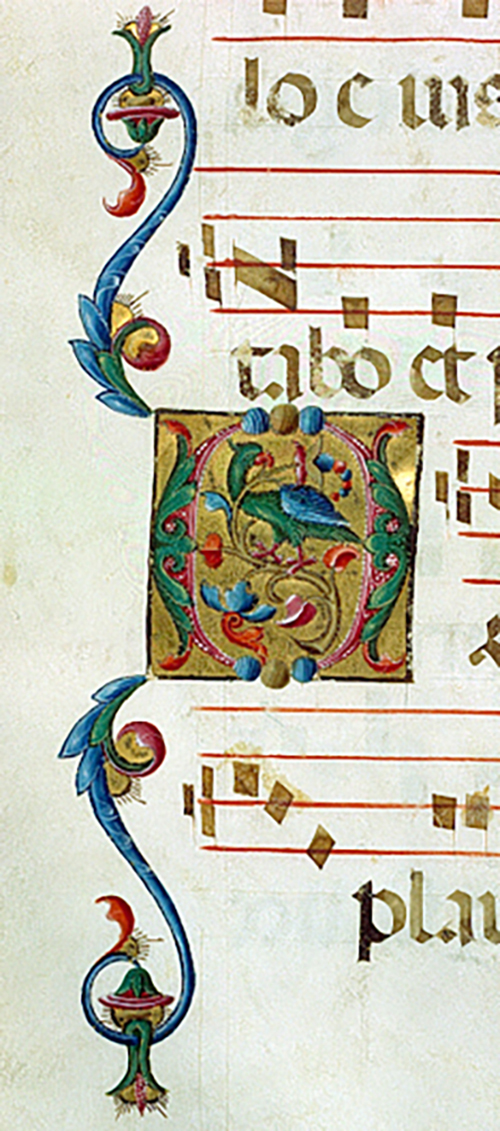 locuis
tabo et p
O
plau